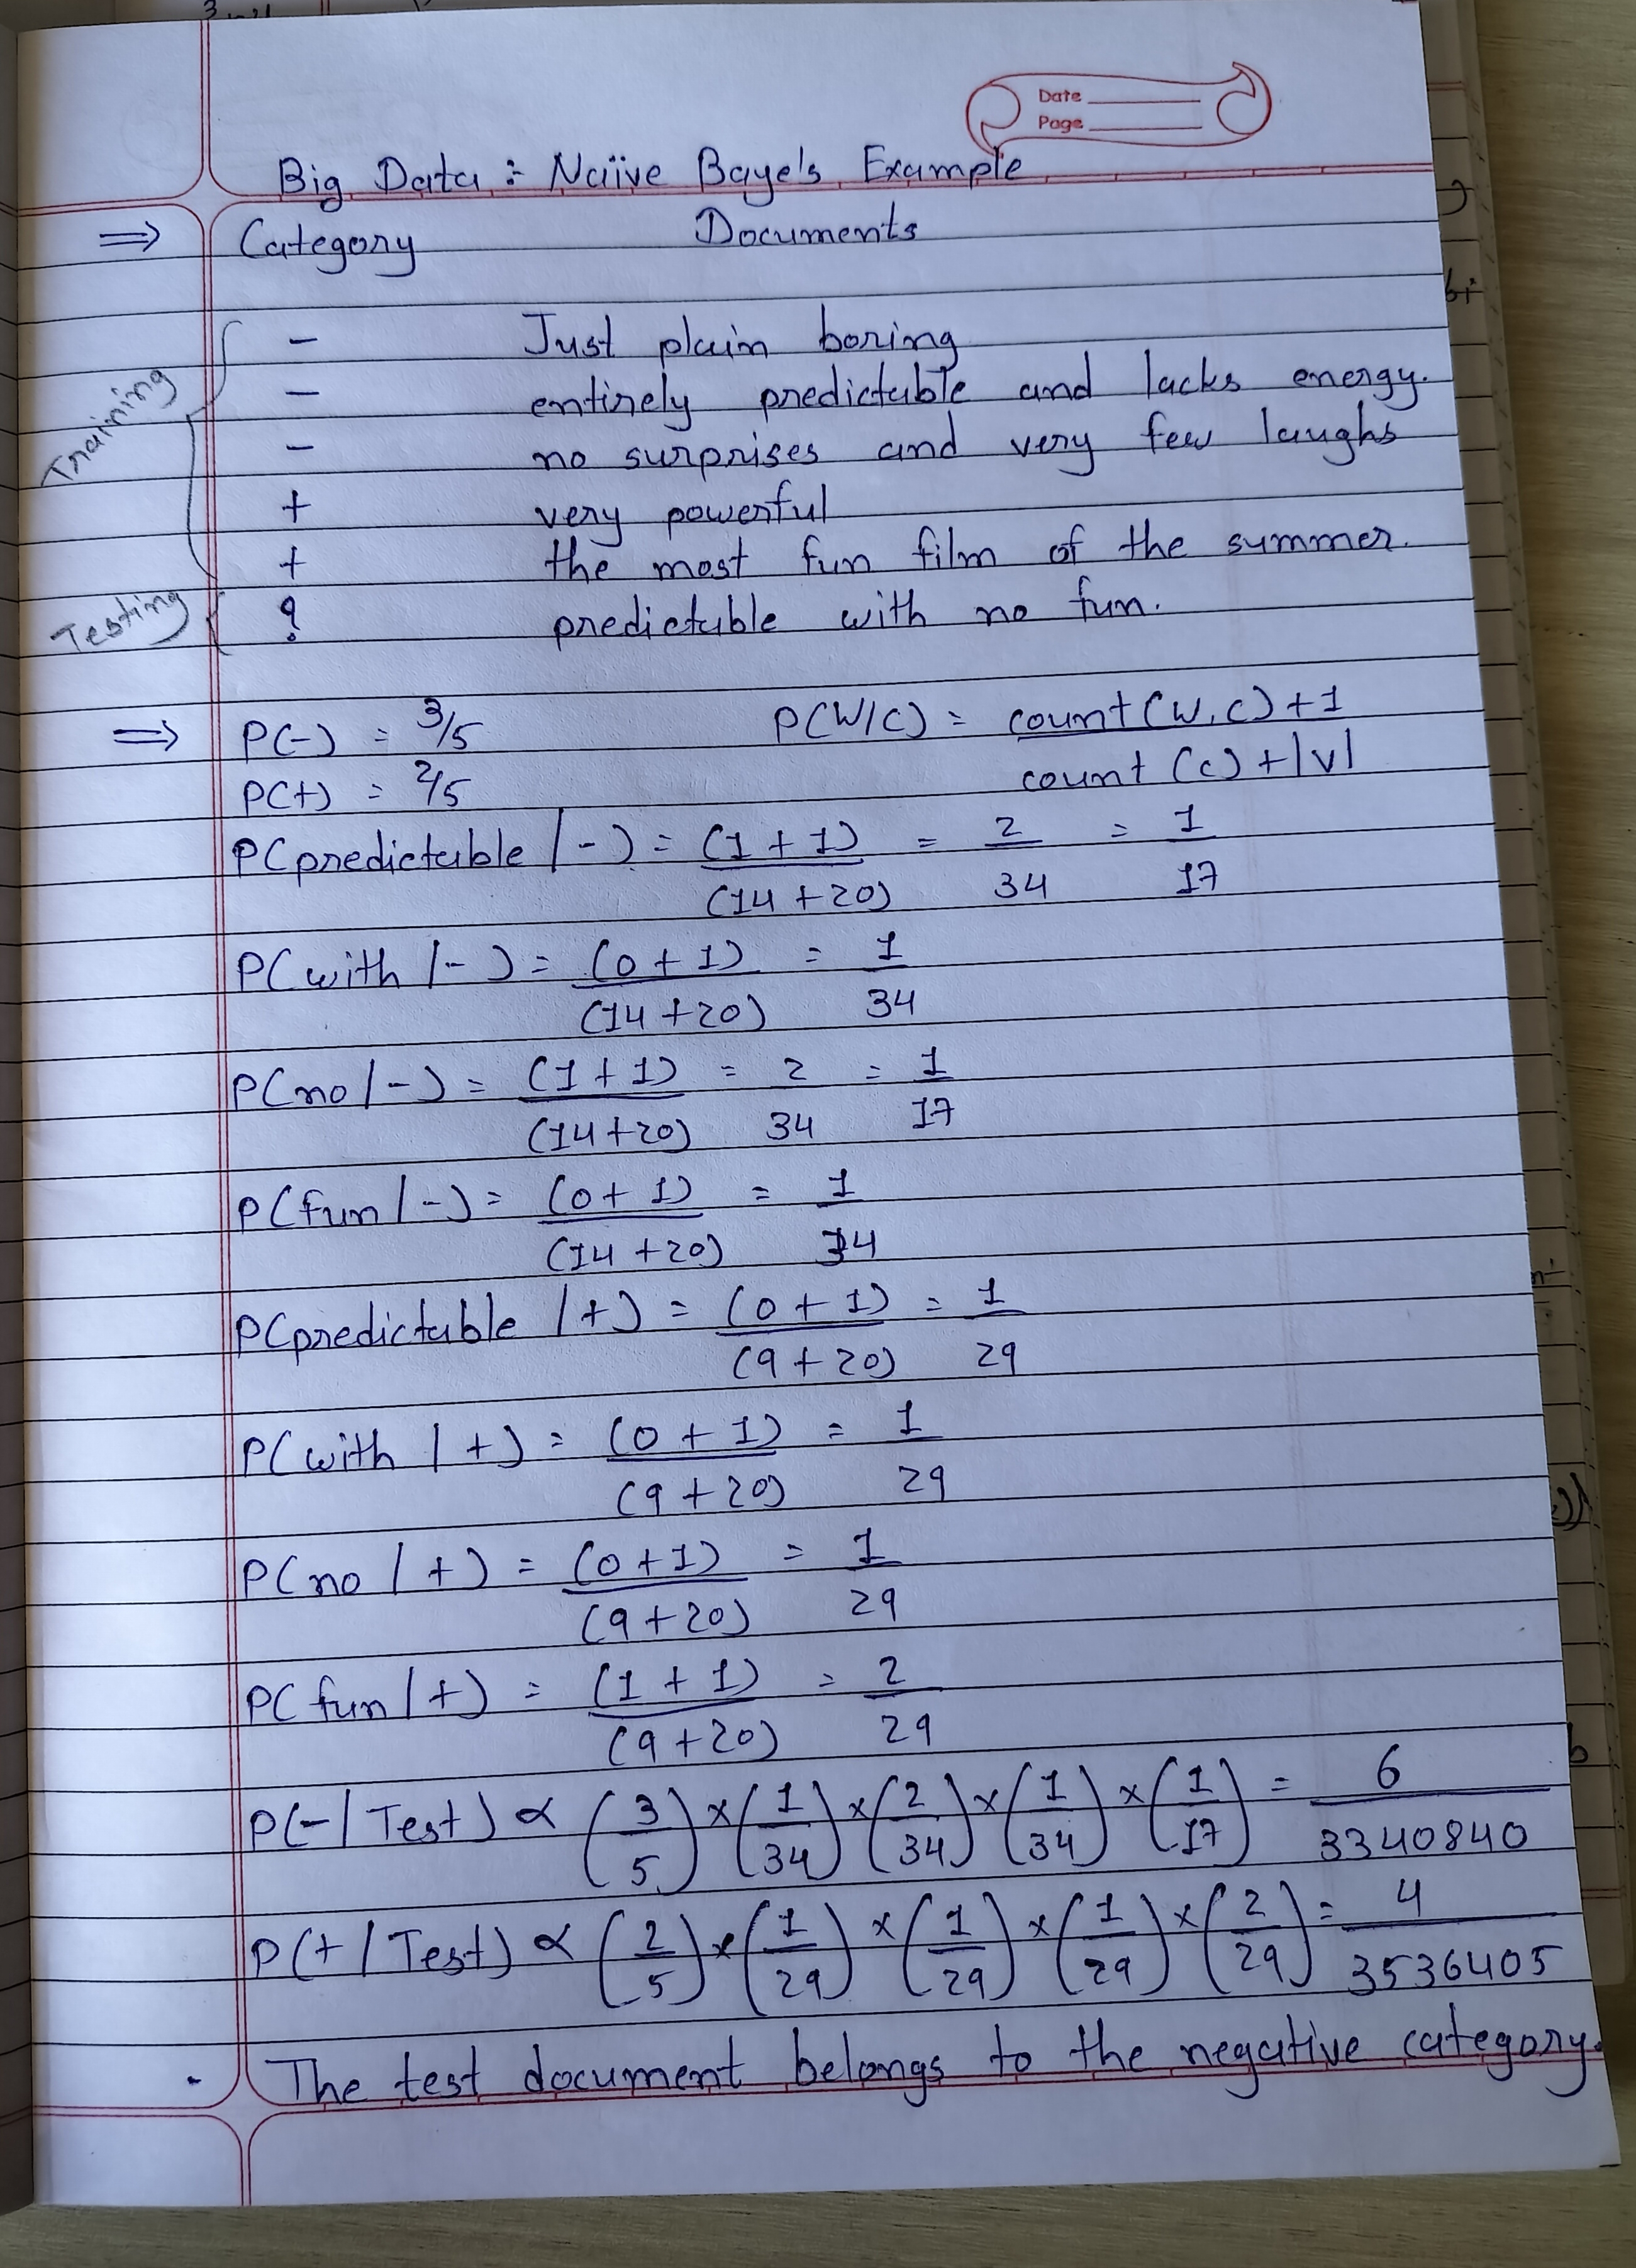 Date
Page
Big Data : Naïive Baye's Example
⇒ Category Documents
Training
- Just plain boring
- entirely predictable and lacks energy.
- no surprises and very few laughs
+ very powerful
+ the most fun film of the summer.
Testing
? predictable with no fun.
⇒ P(-) = 3/5 P(W/C) = count(W,C)+1 / count(C)+|V|
P(+) = 2/5
P(predictable/-) = (1+1)/(14+20) = 2/34 = 1/17
P(with/-) = (0+1)/(14+20) = 1/34
P(no/-) = (1+1)/(14+20) = 2/34 = 1/17
P(fun/-) = (0+1)/(14+20) = 1/34
P(predictable/+) = (0+1)/(9+20) = 1/29
P(with/+) = (0+1)/(9+20) = 1/29
P(no/+) = (0+1)/(9+20) = 1/29
P(fun/+) = (1+1)/(9+20) = 2/29
P(-/Test) ∝ (3/5)×(1/34)×(2/34)×(1/34)×(1/17) = 6/3340840
P(+/Test) ∝ (2/5)×(1/29)×(1/29)×(1/29)×(2/29) = 4/3536405
. The test document belongs to the negative category.